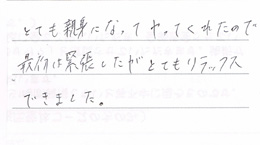 とても親身になってやってくれたので
最初は緊張したがとてもリラックス
できました。